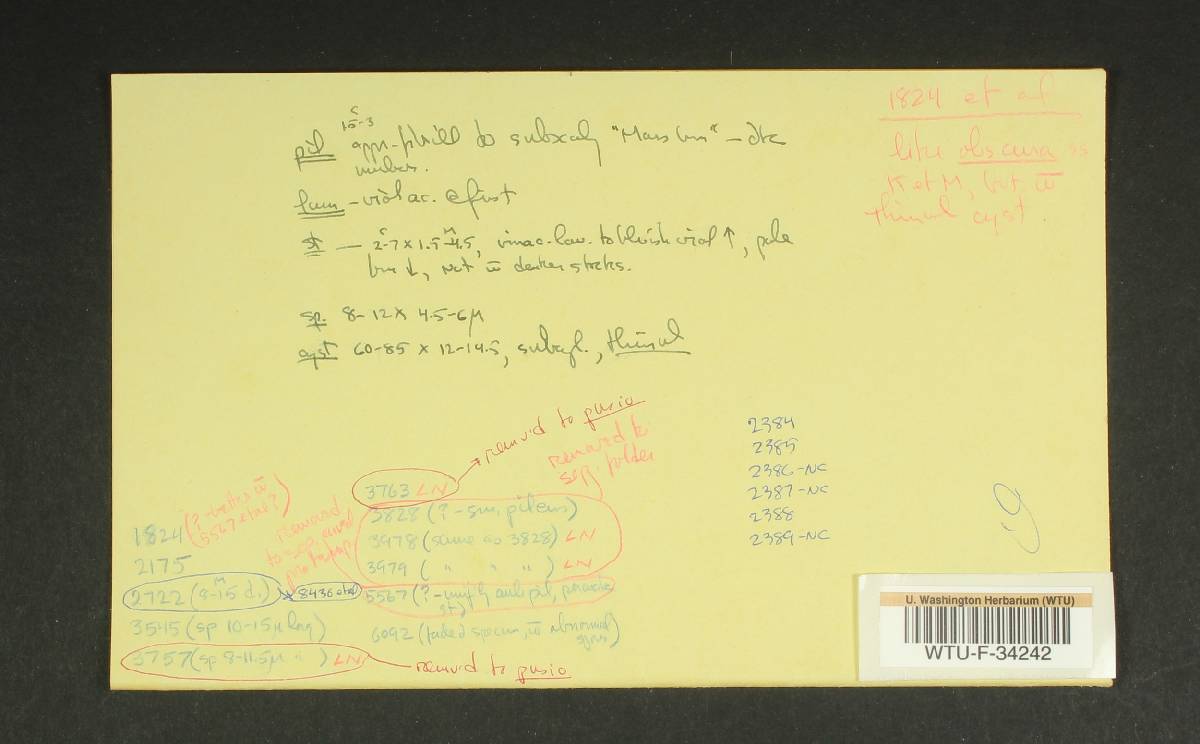 1824 et al
like obscura ss
K et M, but w̄
thinwal cyst.
c
1.5-3
pil appr-fibrill to subscaly "Mars brn" - dk
umber.
lam - violac. @ first
c M
st — 2-7 x 1.5-4.5, vinac-lav. to bluish viol ↑, pale
brn ↓, not w̄ darker streaks.
sp. 8-12 x 4.5-6µ
cyst 60-85 x 12-14.5, subcyl., thinwal
remov'd to pusio
removed to
sep. folder
3763 LN
3828 (?-sm. pileus)
3978 (same as 3828) LN
3979 ( " " " ) LN
5567 (?- smooth pil,
st)
6092 (faded specim, w̄ abnormal
spores)
1824 (?-better w̄
5567 et al?)
removed
to sep.
2175
2722 (8-15 d.)
M
8436 et al
3545 (sp 10-15µ long)
3757 (sp 8-11.5µ " ) LN
remov'd to pusio
2384
2385
2386-NC
2387-NC
2388
2389-NC
U. Washington Herbarium (WTU)
WTU-F-34242